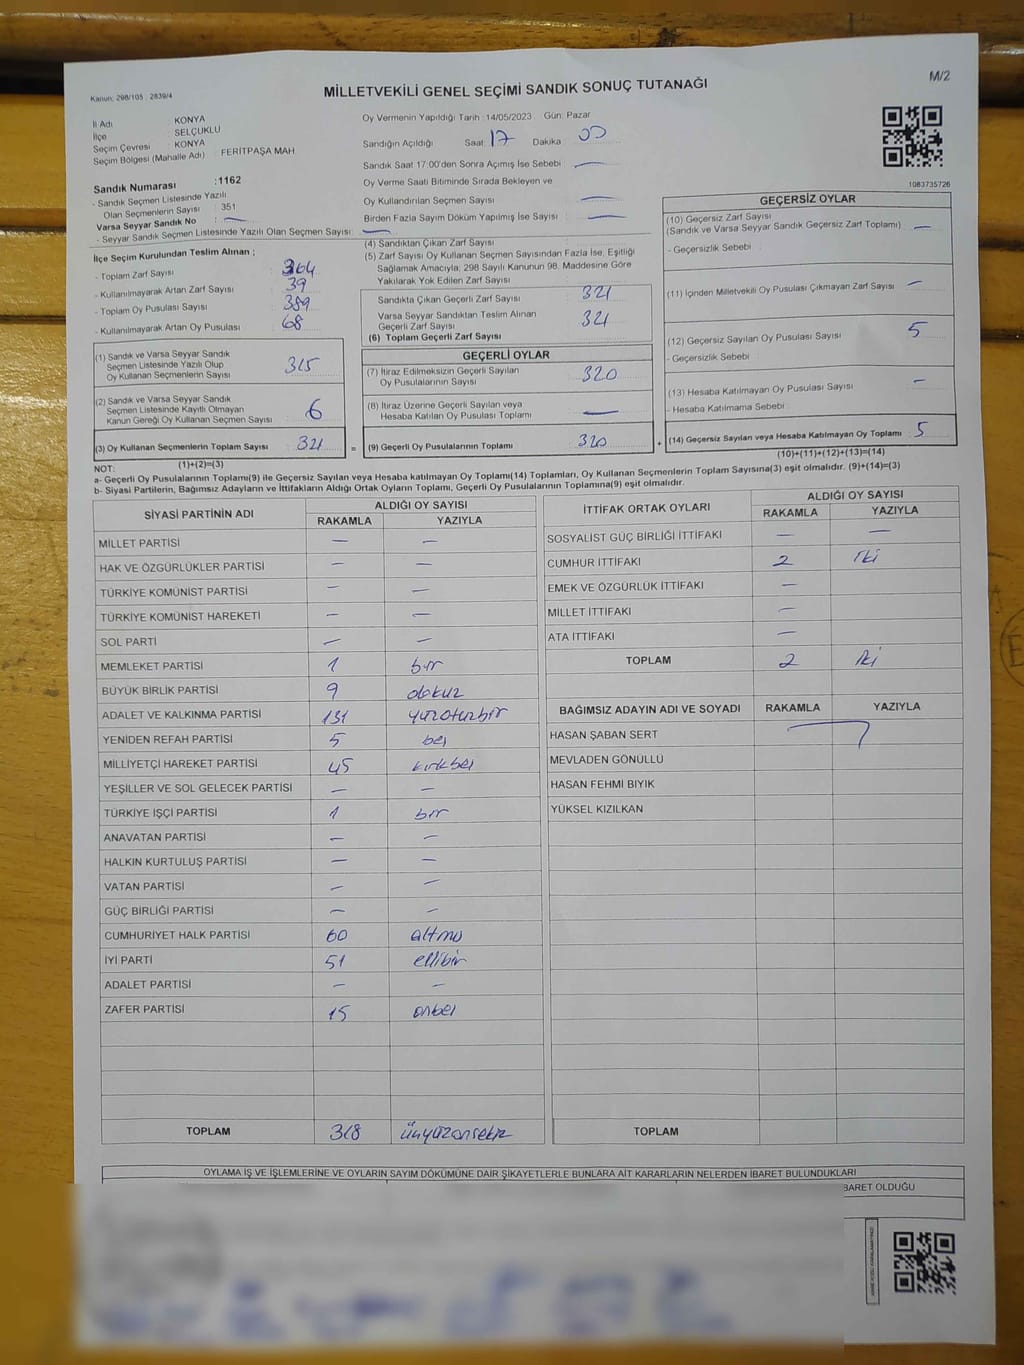 M/2
Kanun: 298/105 : 2839/4
MİLLETVEKİLİ GENEL SEÇİMİ SANDIK SONUÇ TUTANAĞI
İl Adı : KONYA
İlçe : SELÇUKLU
Seçim Çevresi : KONYA
Seçim Bölgesi (Mahalle Adı) : FERİTPAŞA MAH
Sandık Numarası : 1162
- Sandık Seçmen Listesinde Yazılı
Olan Seçmenlerin Sayısı : 351
Varsa Seyyar Sandık No : —
- Seyyar Sandık Seçmen Listesinde Yazılı Olan Seçmen Sayısı: —
Oy Vermenin Yapıldığı Tarih : 14/05/2023 Gün: Pazar
Sandığın Açıldığı Saat: 17 Dakika: 00
Sandık Saat 17:00'den Sonra Açımış İse Sebebi : —
Oy Verme Saati Bitiminde Sırada Bekleyen ve
Oy Kullandırılan Seçmen Sayısı : —
Birden Fazla Sayım Döküm Yapılmış İse Sayısı : —
1083735726
İlçe Seçim Kurulundan Teslim Alınan ;
- Toplam Zarf Sayısı : 364
- Kullanılmayarak Artan Zarf Sayısı : 39
- Toplam Oy Pusulası Sayısı : 389
- Kullanılmayarak Artan Oy Pusulası : 68
(1) Sandık ve Varsa Seyyar Sandık
Seçmen Listesinde Yazılı Olup
Oy Kullanan Seçmenlerin Sayısı : 315
(2) Sandık ve Varsa Seyyar Sandık
Seçmen Listesinde Kayıtlı Olmayan
Kanun Gereği Oy Kullanan Seçmen Sayısı : 6
(3) Oy Kullanan Seçmenlerin Toplam Sayısı : 321
(1)+(2)=(3)
(4) Sandıktan Çıkan Zarf Sayısı :
(5) Zarf Sayısı Oy Kullanan Seçmen Sayısından Fazla İse, Eşitliği
Sağlamak Amacıyla; 298 Sayılı Kanunun 98. Maddesine Göre
Yakılarak Yok Edilen Zarf Sayısı :
Sandıkta Çıkan Geçerli Zarf Sayısı : 321
Varsa Seyyar Sandıktan Teslim Alınan
Geçerli Zarf Sayısı : 321
(6) Toplam Geçerli Zarf Sayısı :
GEÇERLİ OYLAR
(7) İtiraz Edilmeksizin Geçerli Sayılan
Oy Pusulalarının Sayısı : 320
(8) İtiraz Üzerine Geçerli Sayılan veya
Hesaba Katılan Oy Pusulası Toplamı : —
= (9) Geçerli Oy Pusulalarının Toplamı : 320 +
GEÇERSİZ OYLAR
(10) Geçersiz Zarf Sayısı
(Sandık ve Varsa Seyyar Sandık Geçersiz Zarf Toplamı) : —
- Geçersizlik Sebebi :
(11) İçinden Milletvekili Oy Pusulası Çıkmayan Zarf Sayısı : —
(12) Geçersiz Sayılan Oy Pusulası Sayısı : 5
- Geçersizlik Sebebi :
(13) Hesaba Katılmayan Oy Pusulası Sayısı : —
- Hesaba Katılmama Sebebi :
(14) Geçersiz Sayılan veya Hesaba Katılmayan Oy Toplamı : 5
(10)+(11)+(12)+(13)=(14)
NOT:
a- Geçerli Oy Pusulalarının Toplamı(9) ile Geçersiz Sayılan veya Hesaba katılmayan Oy Toplamı(14) Toplamları, Oy Kullanan Seçmenlerin Toplam Sayısına(3) eşit olmalıdır. (9)+(14)=(3)
b- Siyasi Partilerin, Bağımsız Adayların ve İttifakların Aldığı Ortak Oyların Toplamı, Geçerli Oy Pusulalarının Toplamına(9) eşit olmalıdır.
SİYASİ PARTİNİN ADI ALDIĞI OY SAYISI
RAKAMLA YAZIYLA
MİLLET PARTİSİ — —
HAK VE ÖZGÜRLÜKLER PARTİSİ — —
TÜRKİYE KOMÜNİST PARTİSİ — —
TÜRKİYE KOMÜNİST HAREKETİ — —
SOL PARTİ — —
MEMLEKET PARTİSİ 1 bir
BÜYÜK BİRLİK PARTİSİ 9 dokuz
ADALET VE KALKINMA PARTİSİ 131 yüzotuzbir
YENİDEN REFAH PARTİSİ 5 beş
MİLLİYETÇİ HAREKET PARTİSİ 45 kırkbeş
YEŞİLLER VE SOL GELECEK PARTİSİ — —
TÜRKİYE İŞÇİ PARTİSİ 1 bir
ANAVATAN PARTİSİ — —
HALKIN KURTULUŞ PARTİSİ — —
VATAN PARTİSİ — —
GÜÇ BİRLİĞİ PARTİSİ — —
CUMHURİYET HALK PARTİSİ 60 altmış
İYİ PARTİ 51 ellibir
ADALET PARTİSİ — —
ZAFER PARTİSİ 15 onbeş
TOPLAM 318 üçyüzonsekiz
İTTİFAK ORTAK OYLARI ALDIĞI OY SAYISI
RAKAMLA YAZIYLA
SOSYALİST GÜÇ BİRLİĞİ İTTİFAKI — —
CUMHUR İTTİFAKI 2 iki
EMEK VE ÖZGÜRLÜK İTTİFAKI —
MİLLET İTTİFAKI —
ATA İTTİFAKI —
TOPLAM 2 iki
BAĞIMSIZ ADAYIN ADI VE SOYADI RAKAMLA YAZIYLA
HASAN ŞABAN SERT
MEVLADEN GÖNÜLLÜ
HASAN FEHMİ BIYIK
YÜKSEL KIZILKAN
TOPLAM
OYLAMA İŞ VE İŞLEMLERİNE VE OYLARIN SAYIM DÖKÜMÜNE DAİR ŞİKAYETLERLE BUNLARA AİT KARARLARIN NELERDEN İBARET BULUNDUKLARI
BARET OLDUĞU